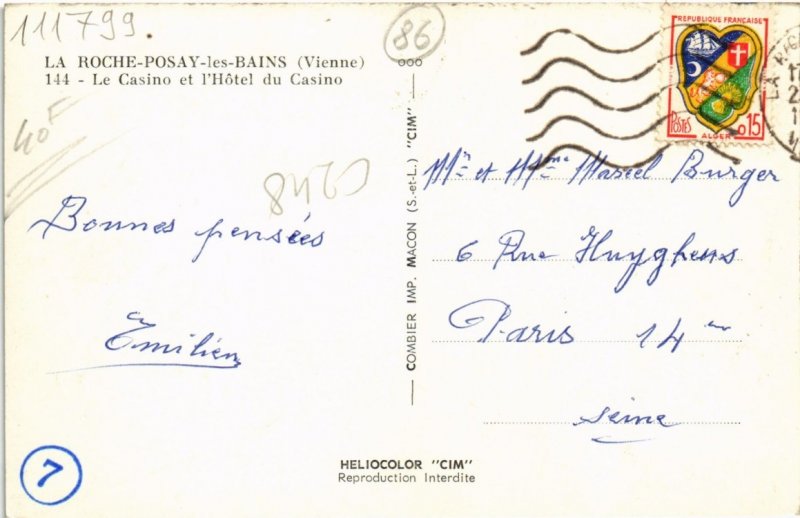 111799.
86
LA ROCHE-POSAY-les-BAINS (Vienne)
144 - Le Casino et l'Hôtel du Casino
REPUBLIQUE FRANÇAISE
POSTES
0,15
ALGER
40F
8420
Bonnes pensées
Emilien
COMBIER IMP. MACON (S.-et-L.) "CIM"
Mr et Mme Marcel Burger
6 Rue Huyghens
Paris 14 em
Seine
7
HELIOCOLOR "CIM"
Reproduction Interdite